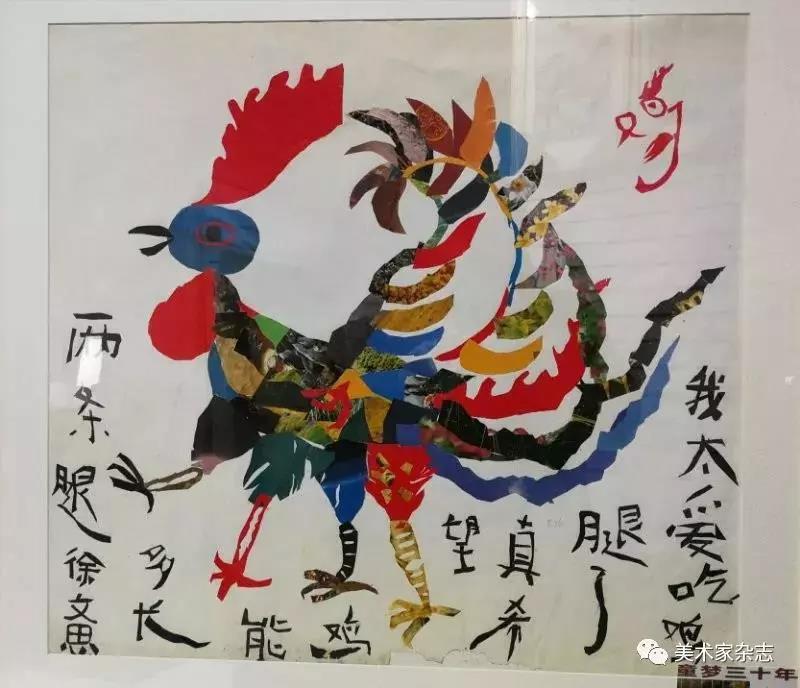 鸡
我太爱吃鸡
腿了
真希
望
鸡
能
多长
两条腿
徐文
美术家杂志
童梦三十年